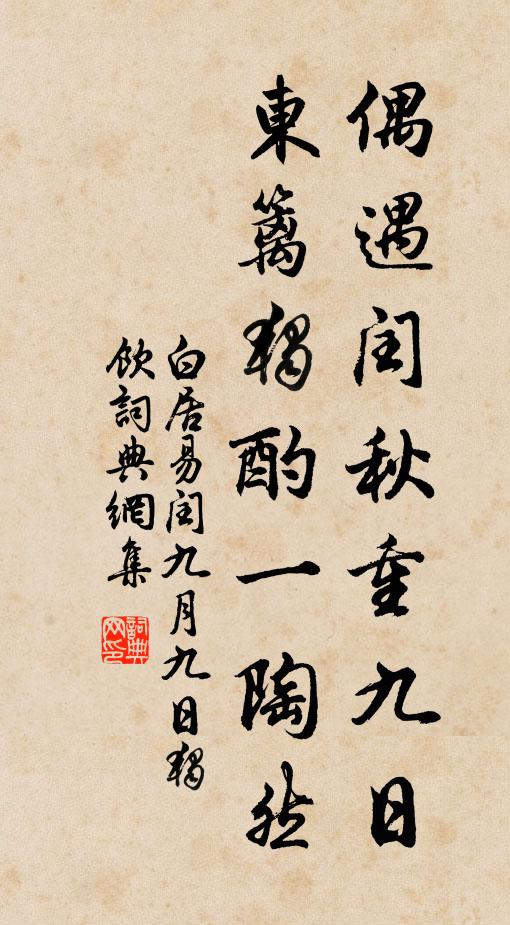 偶遇闰秋重九日
東籬獨酌一陶然
白居易闰九月九日獨
飲詞典網集
詞典
网印